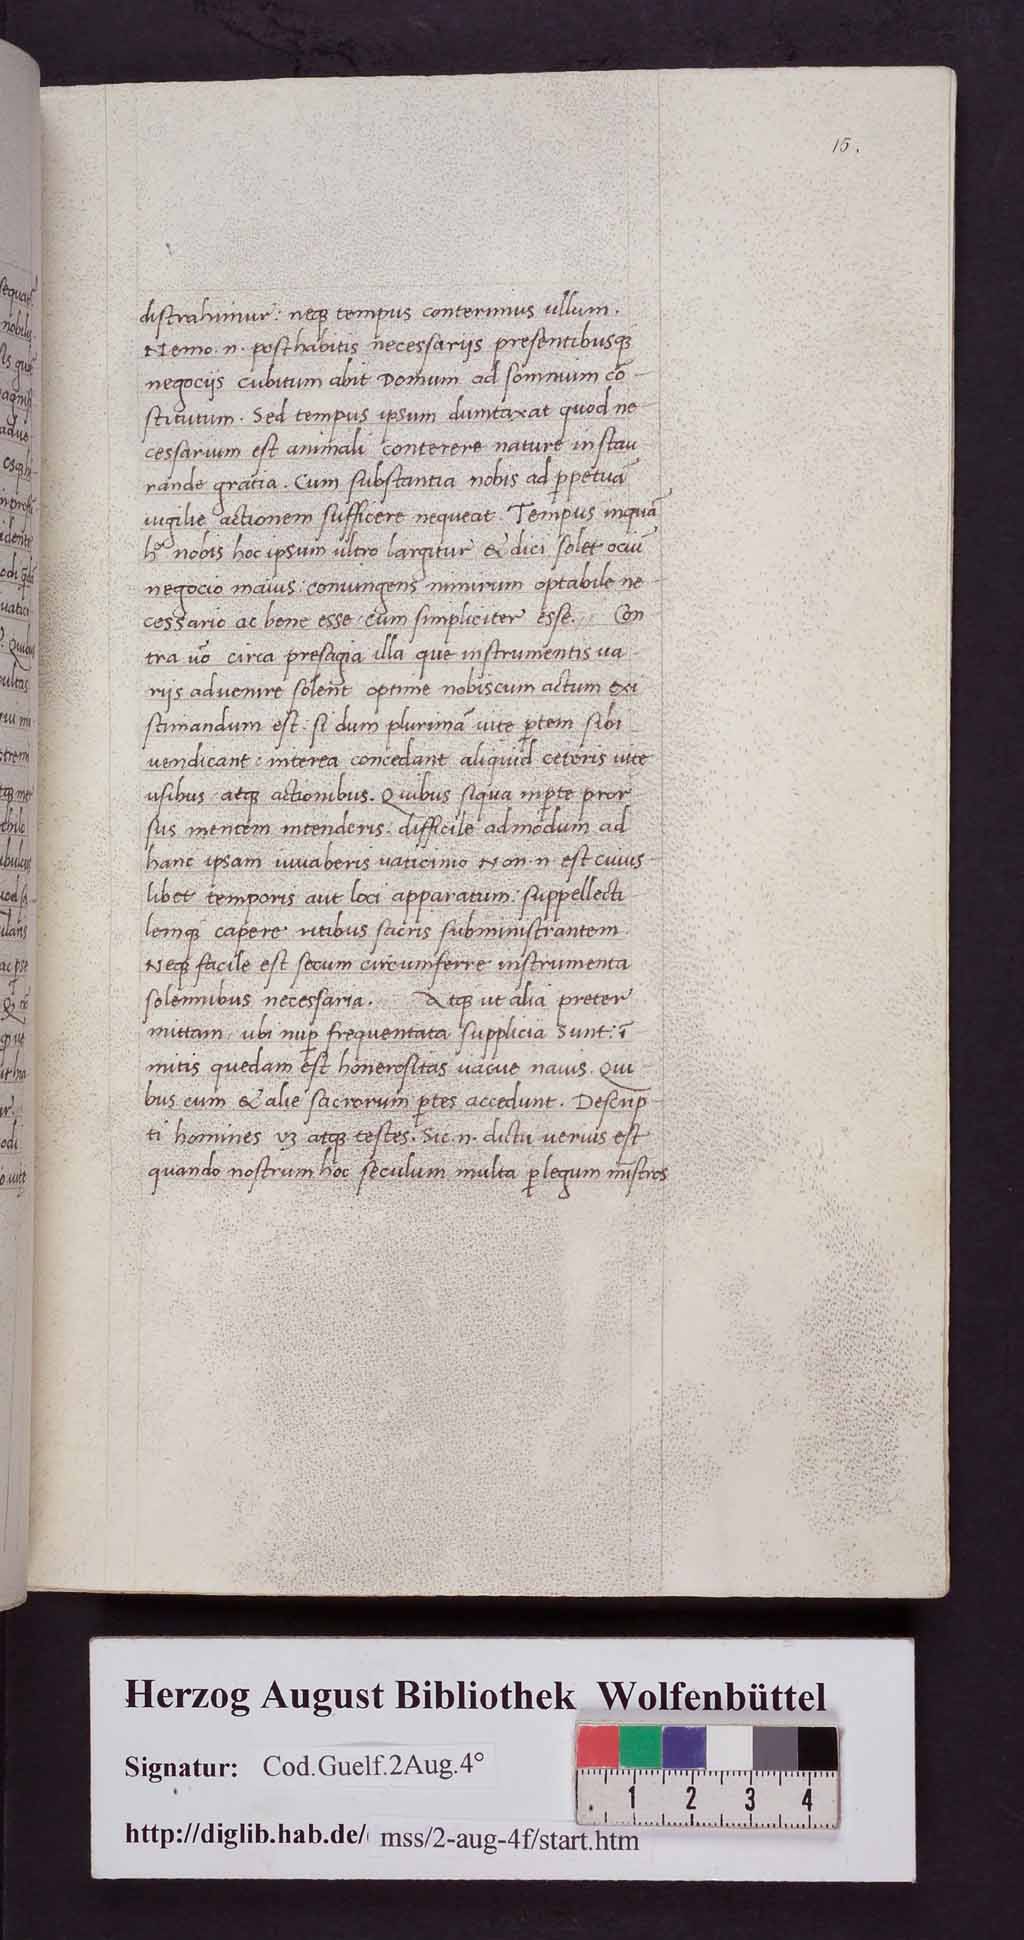 15.
distrahimur: neq; tempus conterimus ullum.
Nemo .n. posthabitis necessarijs presentibusq;
negocijs cubitum abit Domum ad somnium cō-
stitutum. Sed tempus ipsum dumtaxat quod ne-
cessarium est animali conterere nature instau
rande gratia. Cum substantia nobis ad ꝑpetuā
uigilie actionem sufficere nequeat. Tempus inquā
nobis hoc ipsum ultro largitur & dici solet ociū
negocio maius: coniungens nimirum optabile ne-
cessario ac bene esse cum simpliciter esse. Con
tra uō circa presagia illa que instrumentis ua-
rijs aduenire solent optime nobiscum actum exi
stimandum est: si dum plurimā uite ꝑtem sibi
uendicant: interea concedant aliquid ceteris uite
usibus atq; actionibus. Quibus siqua inꝑte pror
sus mentem intenderis: difficile admodum ad
hanc ipsam iuuaberis uaticinio Non .n. est cuius-
libet temporis aut loci apparatum: suppellecti
lemq; capere ritibus sacris subministrantem.
Neq; facile est secum circumferre instrumenta
solennibus necessaria. Atq; ut alia preter
mittam, ubi nuꝑ frequentata supplicia Sunt: ī
mitis quedam est honerositas uacue nauis. Qui
bus cum & alie sacrorum ꝑtes accedunt. Descrip-
ti homines uꝫ atq; testes. Sic .n. dictu uerius est
quando nostrum hoc seculum multa ꝑ legum mīstros
sequar
nobilis
Herzog August Bibliothek Wolfenbüttel
Signatur: Cod.Guelf.2Aug.4°
http://diglib.hab.de/ mss/2-aug-4f/start.htm
1 2 3 4